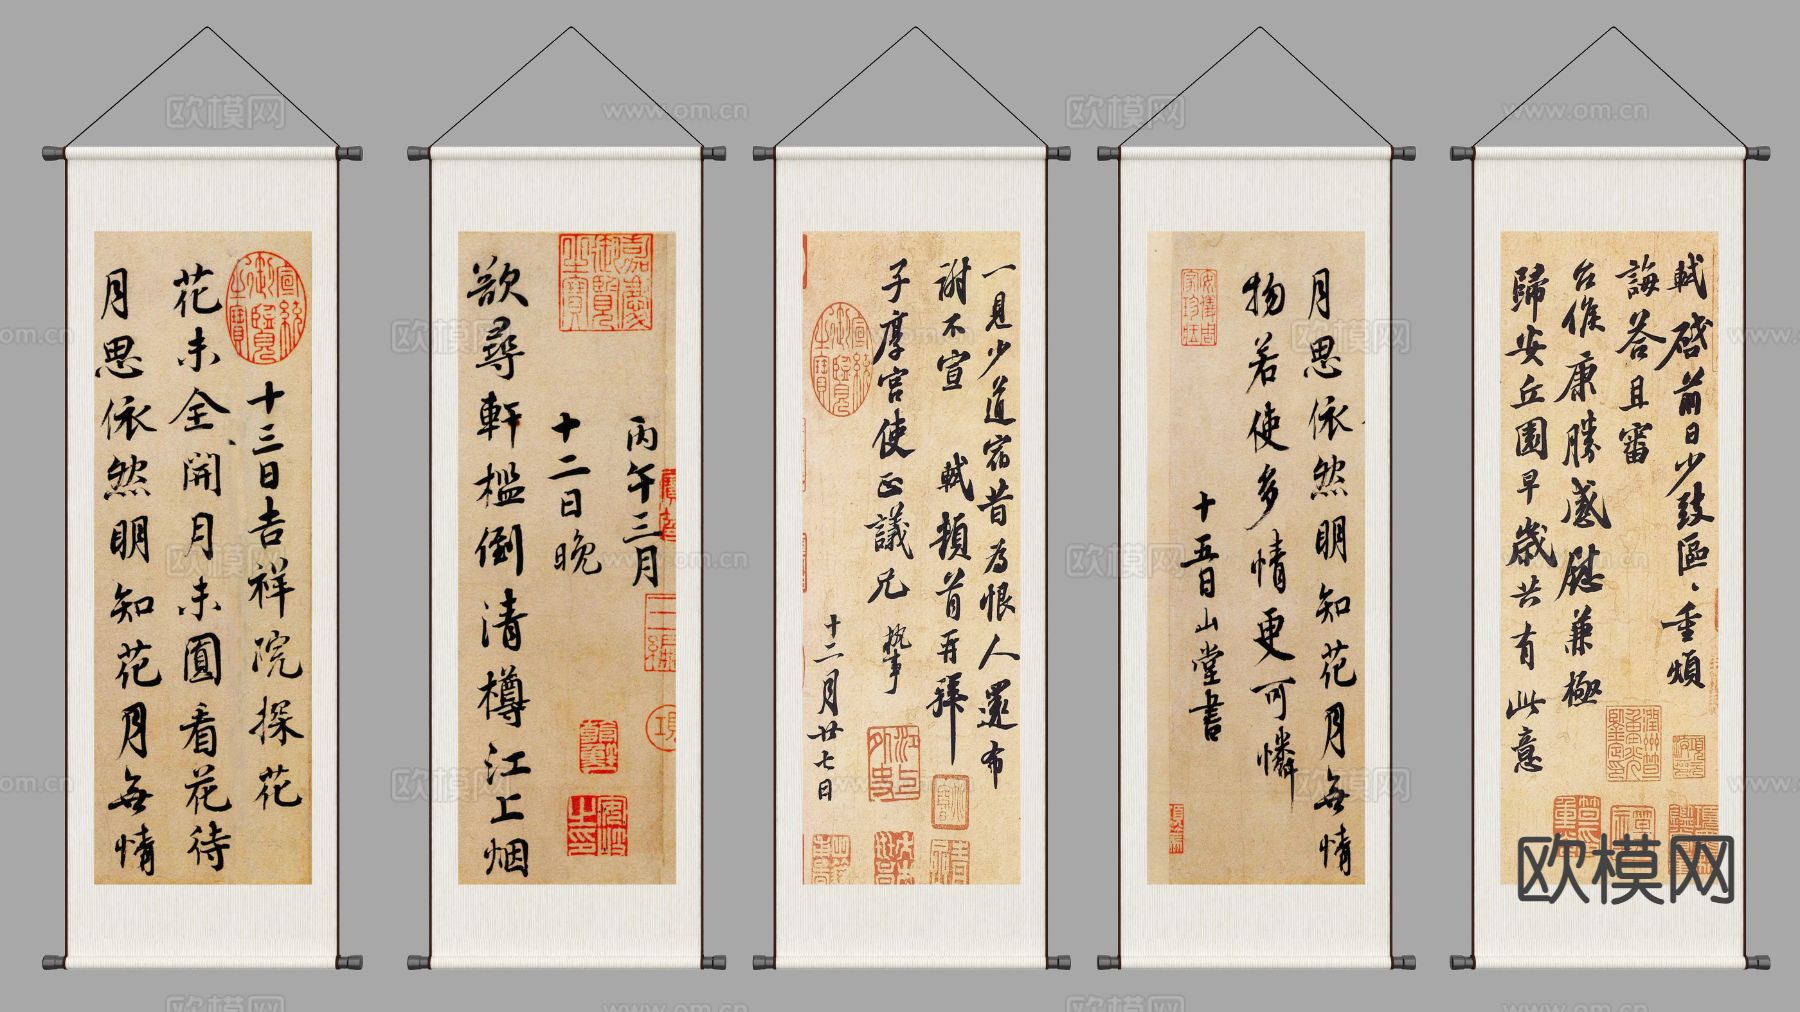 十三日吉祥院探花
花未全開月未圓看花待
月思依然明知花月無情
丙午三月
十二日晚
欲尋軒檻倒清樽江上烟
一見少道宿昔為恨人還布
謝不宣 軾頓首再拜
子厚宮使正議兄 執事
十二月廿七日
月思依然明知花月無情
物若使多情更可憐
十五日山堂書
軾啓前日少致區〻重煩
誨荅且審
台候康勝感慰兼極
歸安丘園早歲共有此意
宣統御覽之寶
嘉慶御覽之寶
宣統御覽之寶
欧模网
www.om.cn